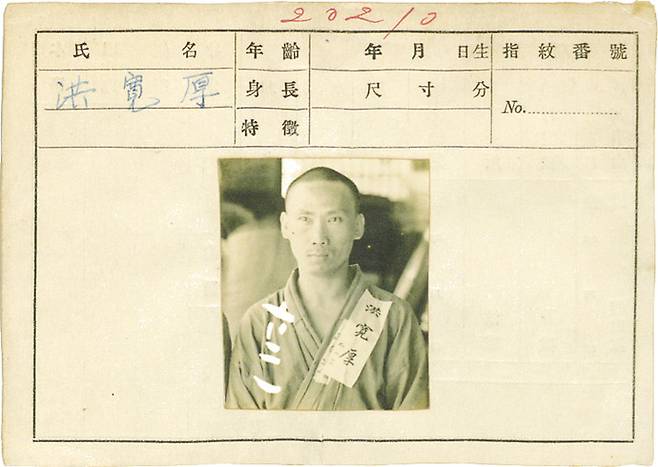 20210
氏名 年齡 年月日生 指紋番號
洪寬厚 身長 尺寸分 No.
特徵
洪寬厚